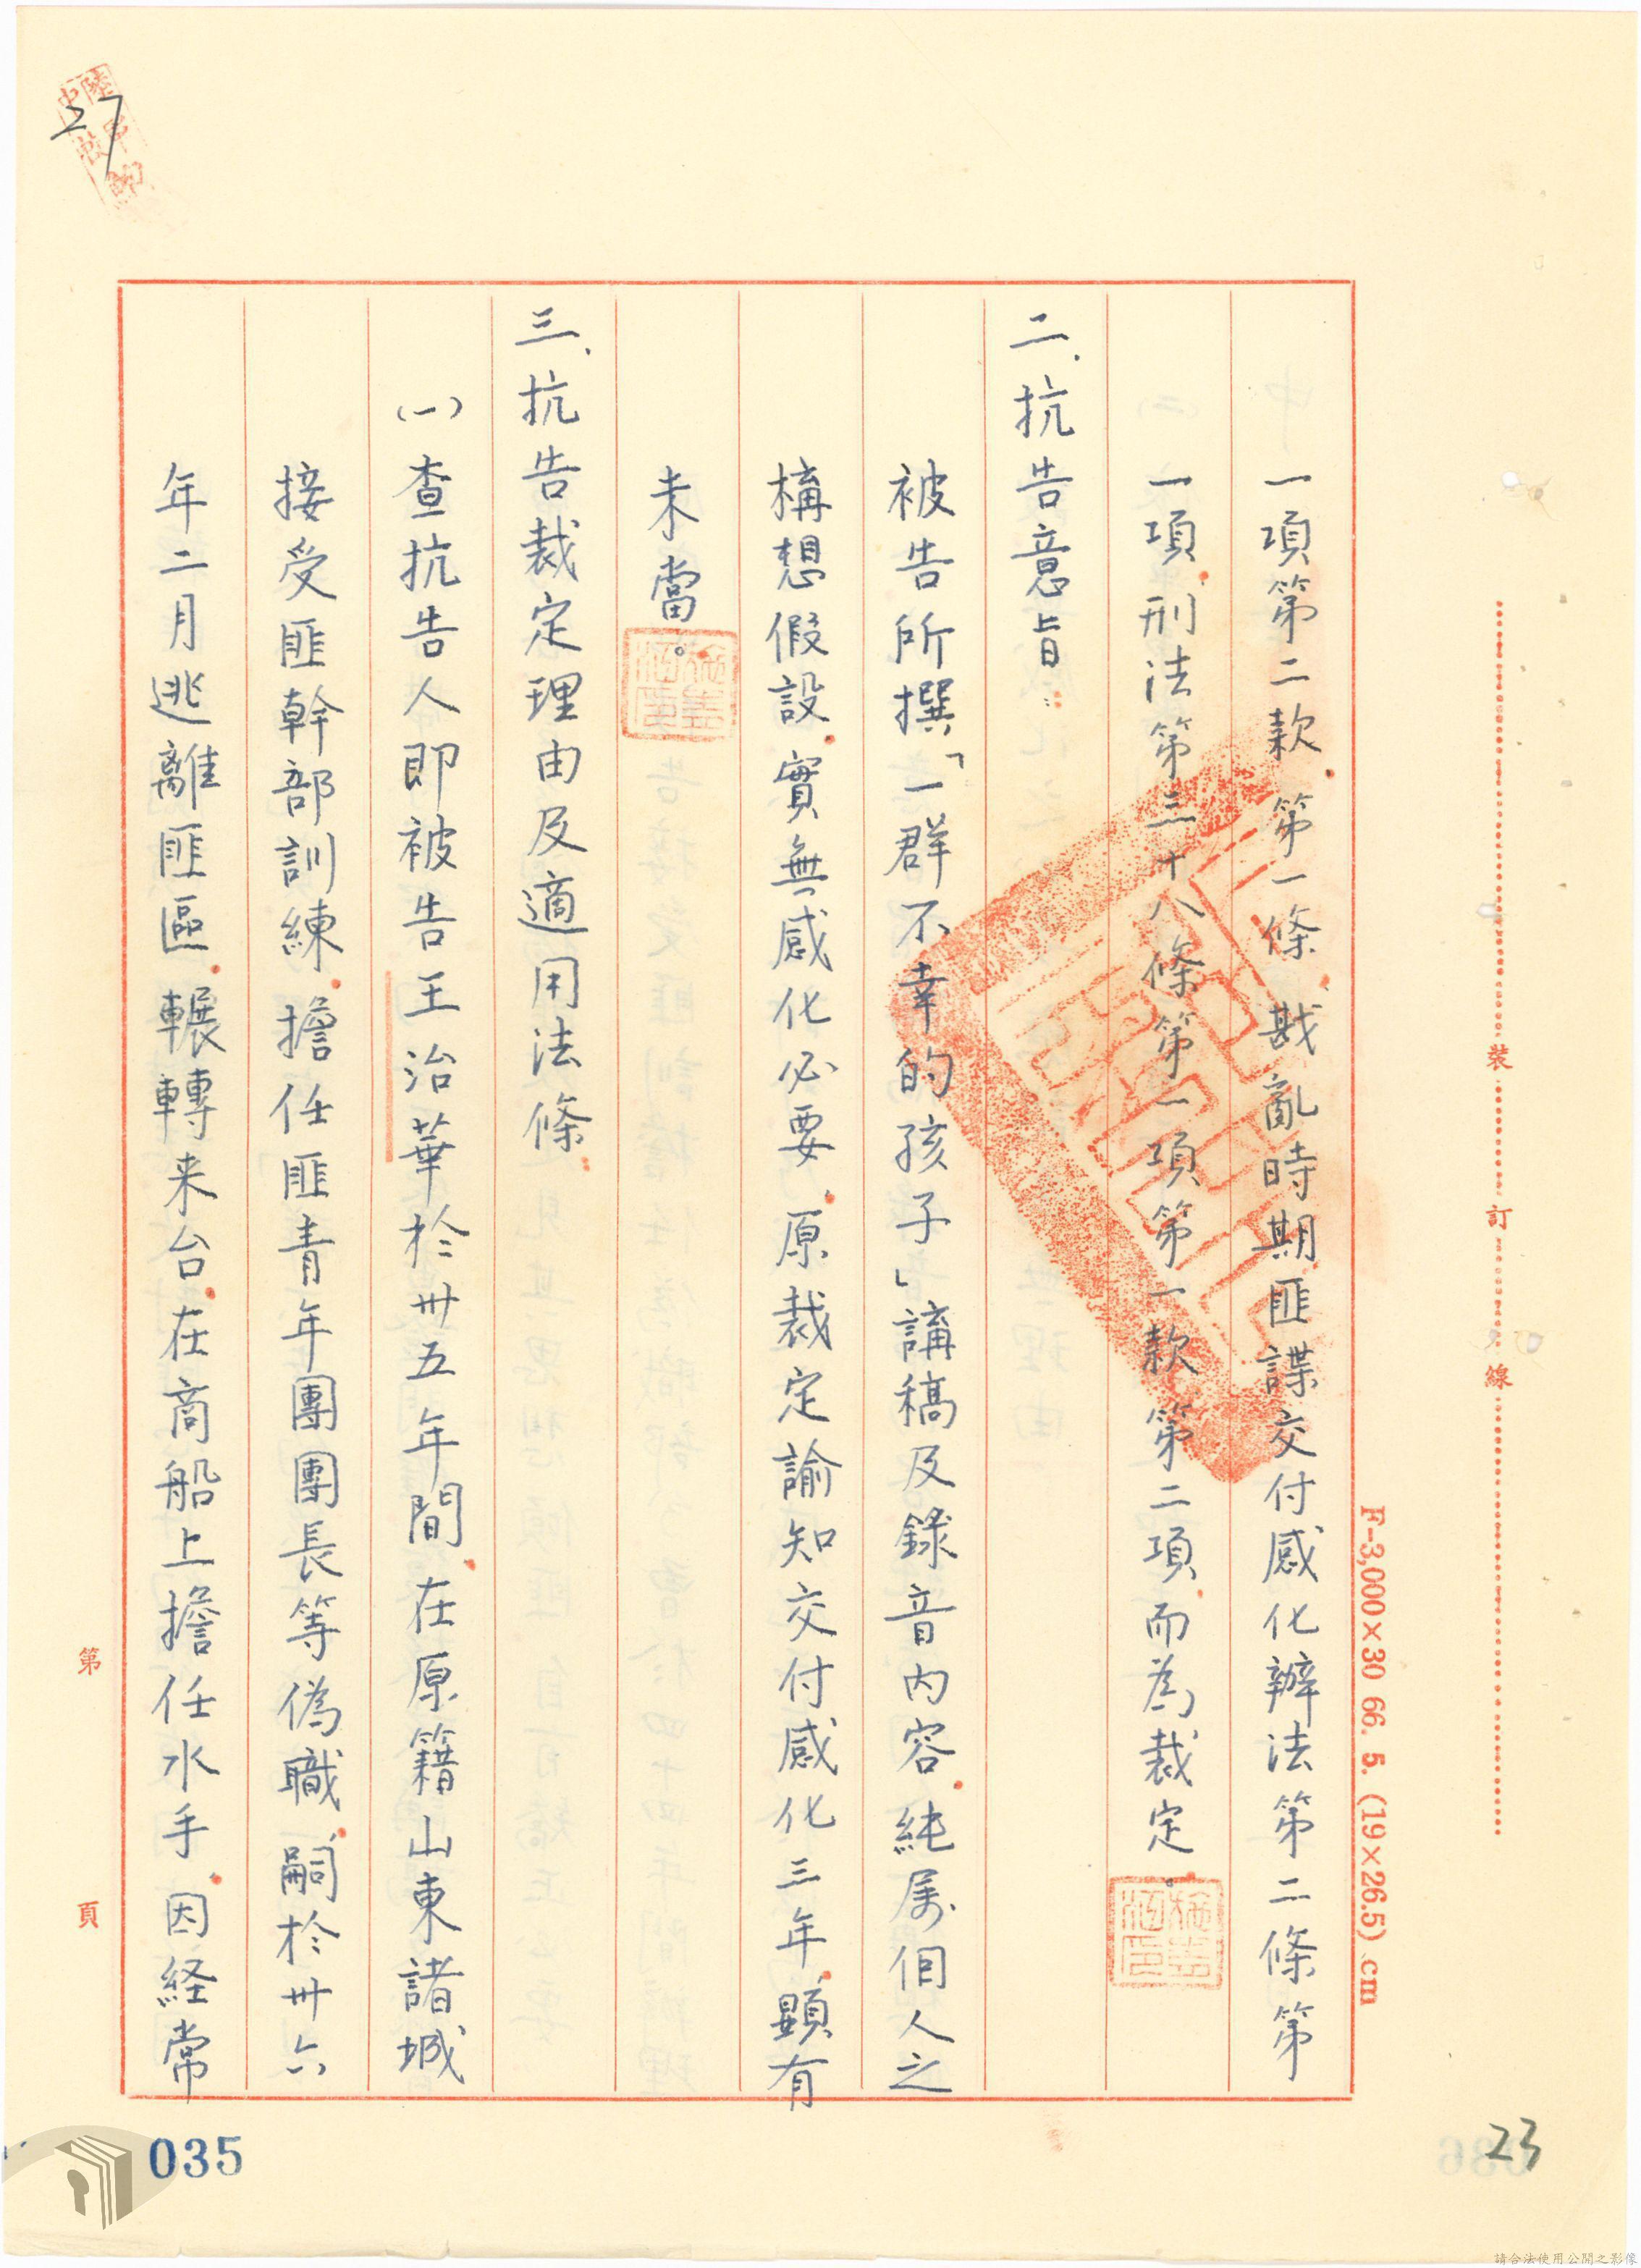 一項第二款、第一條、戡亂時期匪諜交付感化辦法第二條第
一項、刑法第三十八條第一項第一款、第二項、而為裁定。
二、抗告意旨：
被告所撰「一群不幸的孩子」講稿及錄音內容，純屬個人之
構想假設，實無感化必要，原裁定諭知交付感化三年，顯有
未當。
三、抗告裁定理由及適用法條：
(一)查抗告人即被告王治華於卅五年間，在原籍山東諸城
接受匪幹部訓練，擔任匪青年團團長等偽職，嗣於卅六
年二月逃離匪區，輾轉来台，在商船上擔任水手，因経常
裝訂線
F-3,000×30 66. 5. (19×26.5) cm
第 頁
27
23
035
請合法使用公開之影像